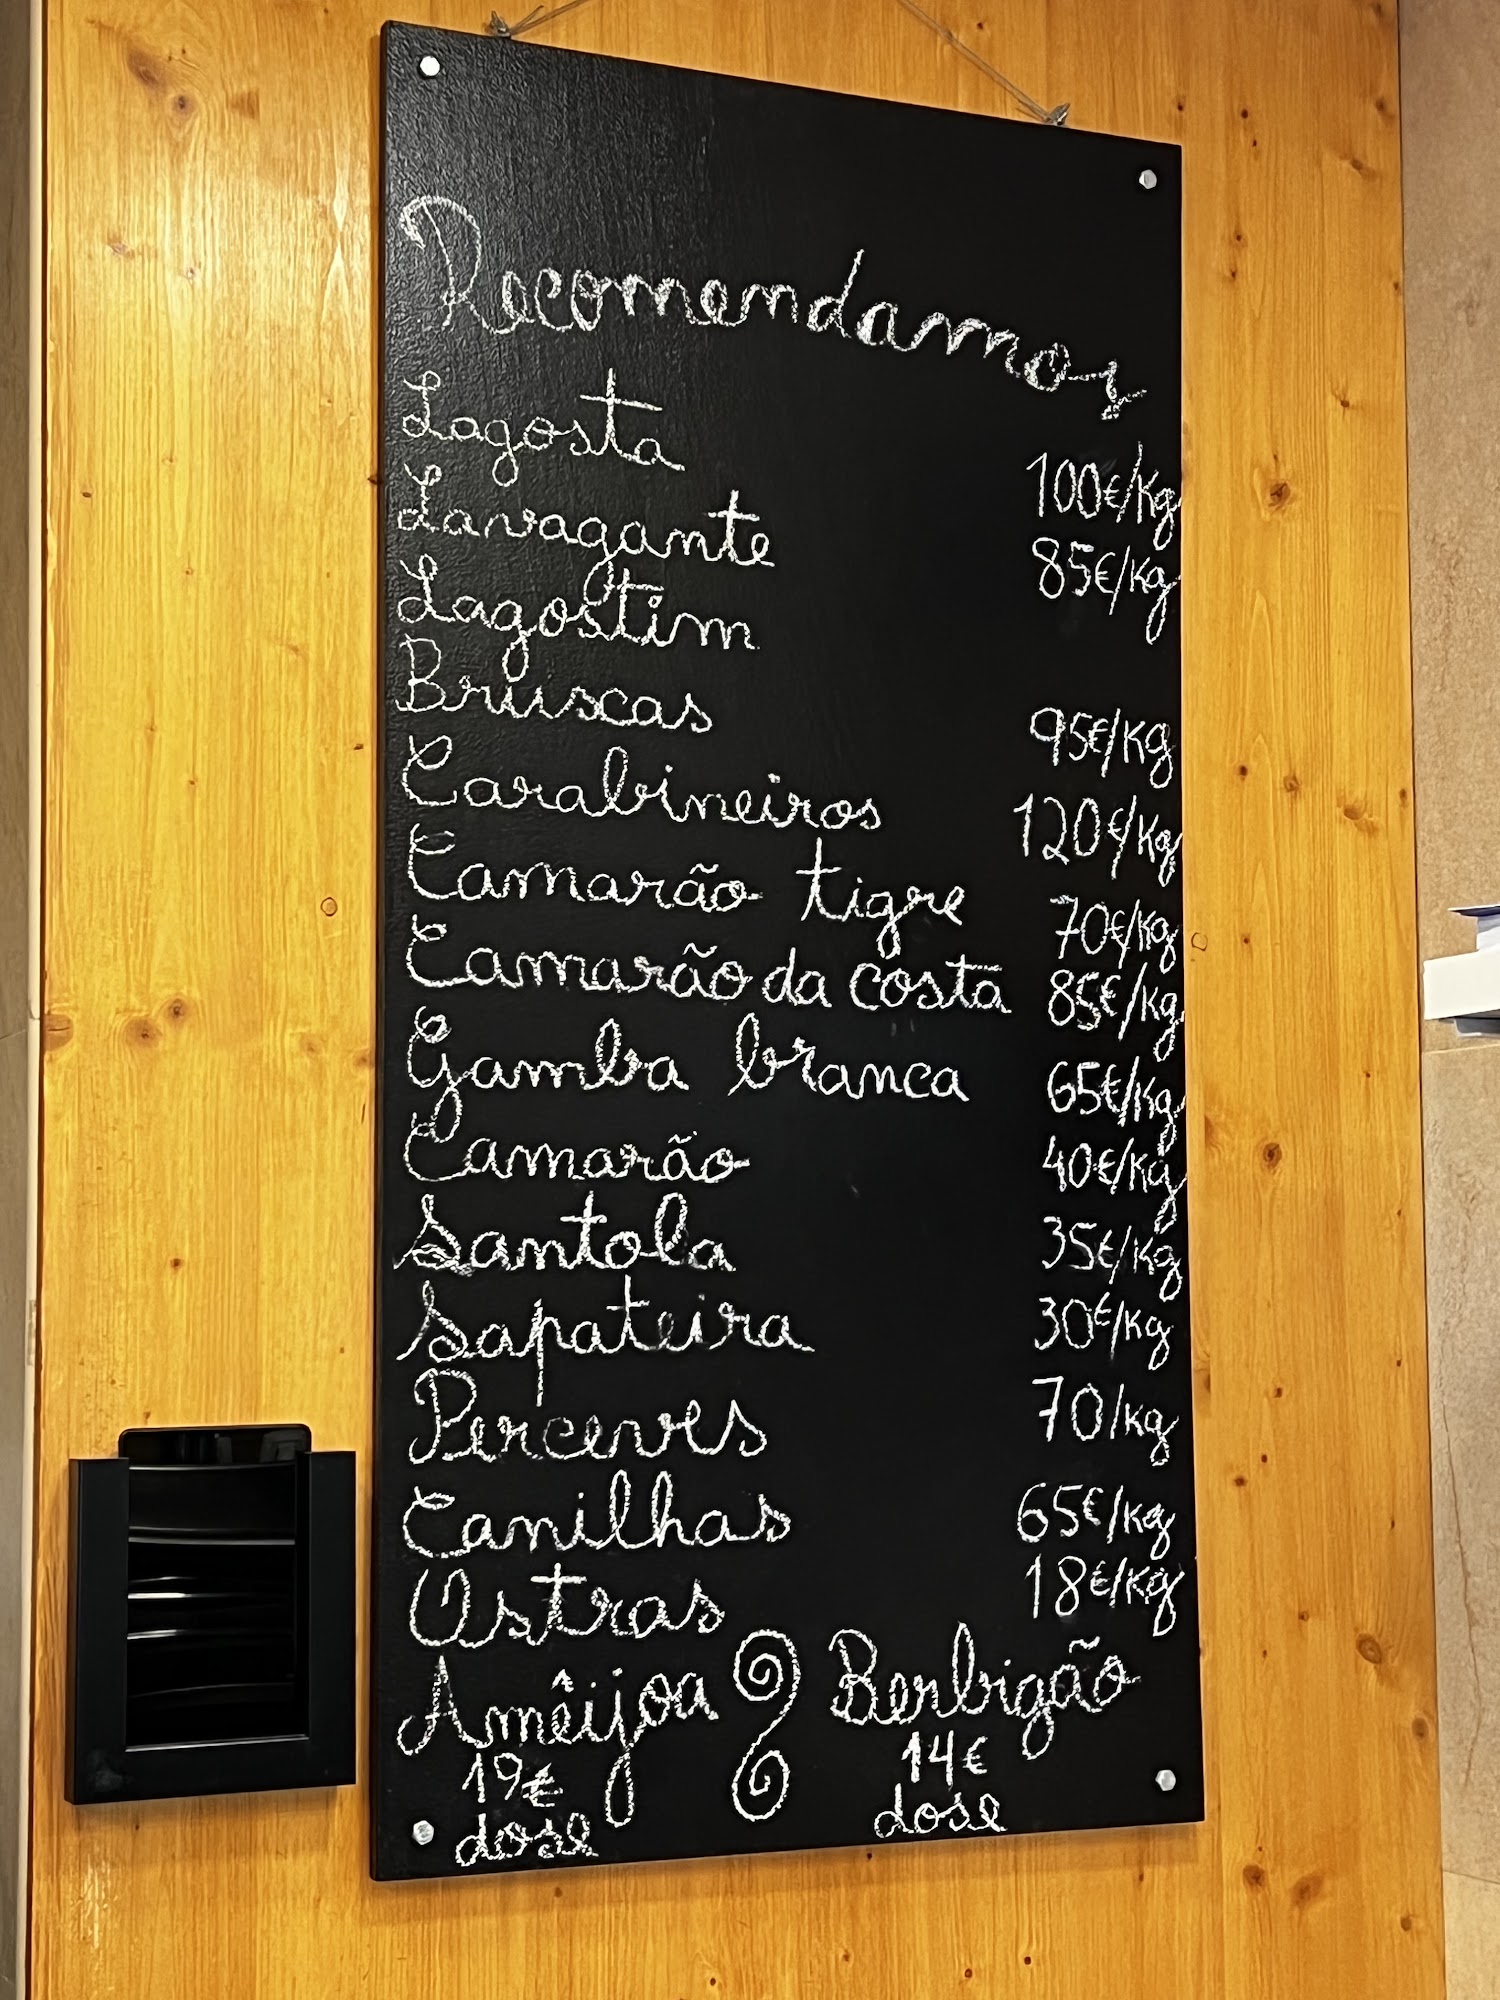 Recomendamos
Lagosta 100€/Kg
Lavagante 85€/Kg
Lagostim
Bruscas 95€/Kg
Carabineiros 120€/Kg
Camarão tigre 70€/Kg
Camarão da costa 85€/Kg
Gamba branca 65€/Kg
Camarão 40€/Kg
Santola 35€/Kg
Sapateira 30€/Kg
Perceves 70/Kg
Canilhas 65€/Kg
Ostras 18€/Kg
Amêijoa Berbigão
19€ 14€
dose dose